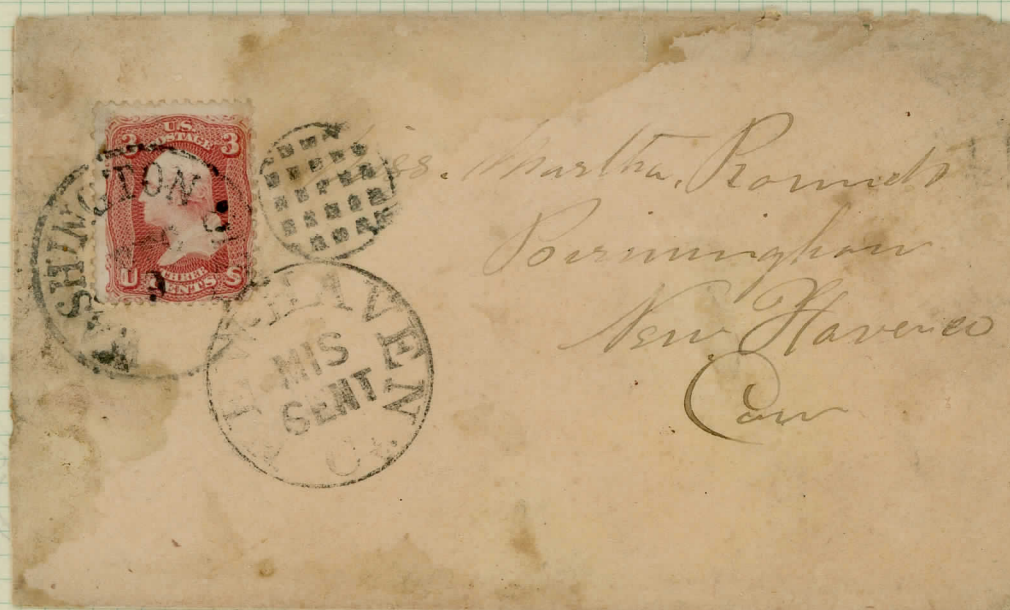 U.S.
POSTAGE
3 3
U THREE S
CENTS
WASHINGTON
NEW HAVEN
MIS
SENT
Ct.
Miss. Martha. Rounds
Birmingham
New Haven co
Conn